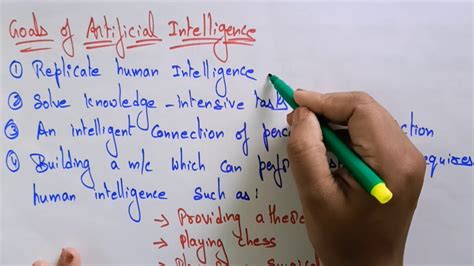 Goals of Artificial Intelligence
① Replicate human Intelligence
② Solve knowledge-intensive tasks
③ An intelligent connection of
④ Building a m/c which can requires
human intelligence such as:
→ Providing a
→ Playing chess